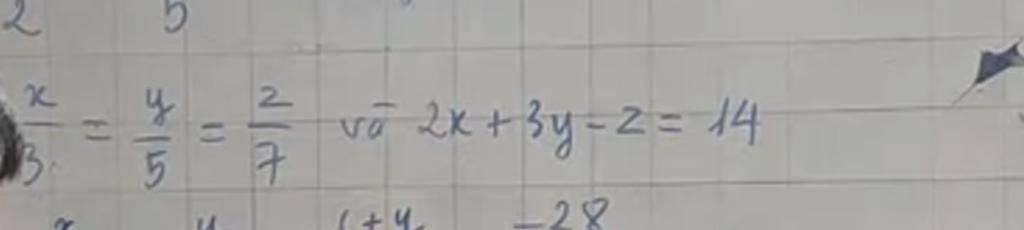 2 5
x/3 = y/5 = z/7 và 2x + 3y - z = 14
x y x+y -28